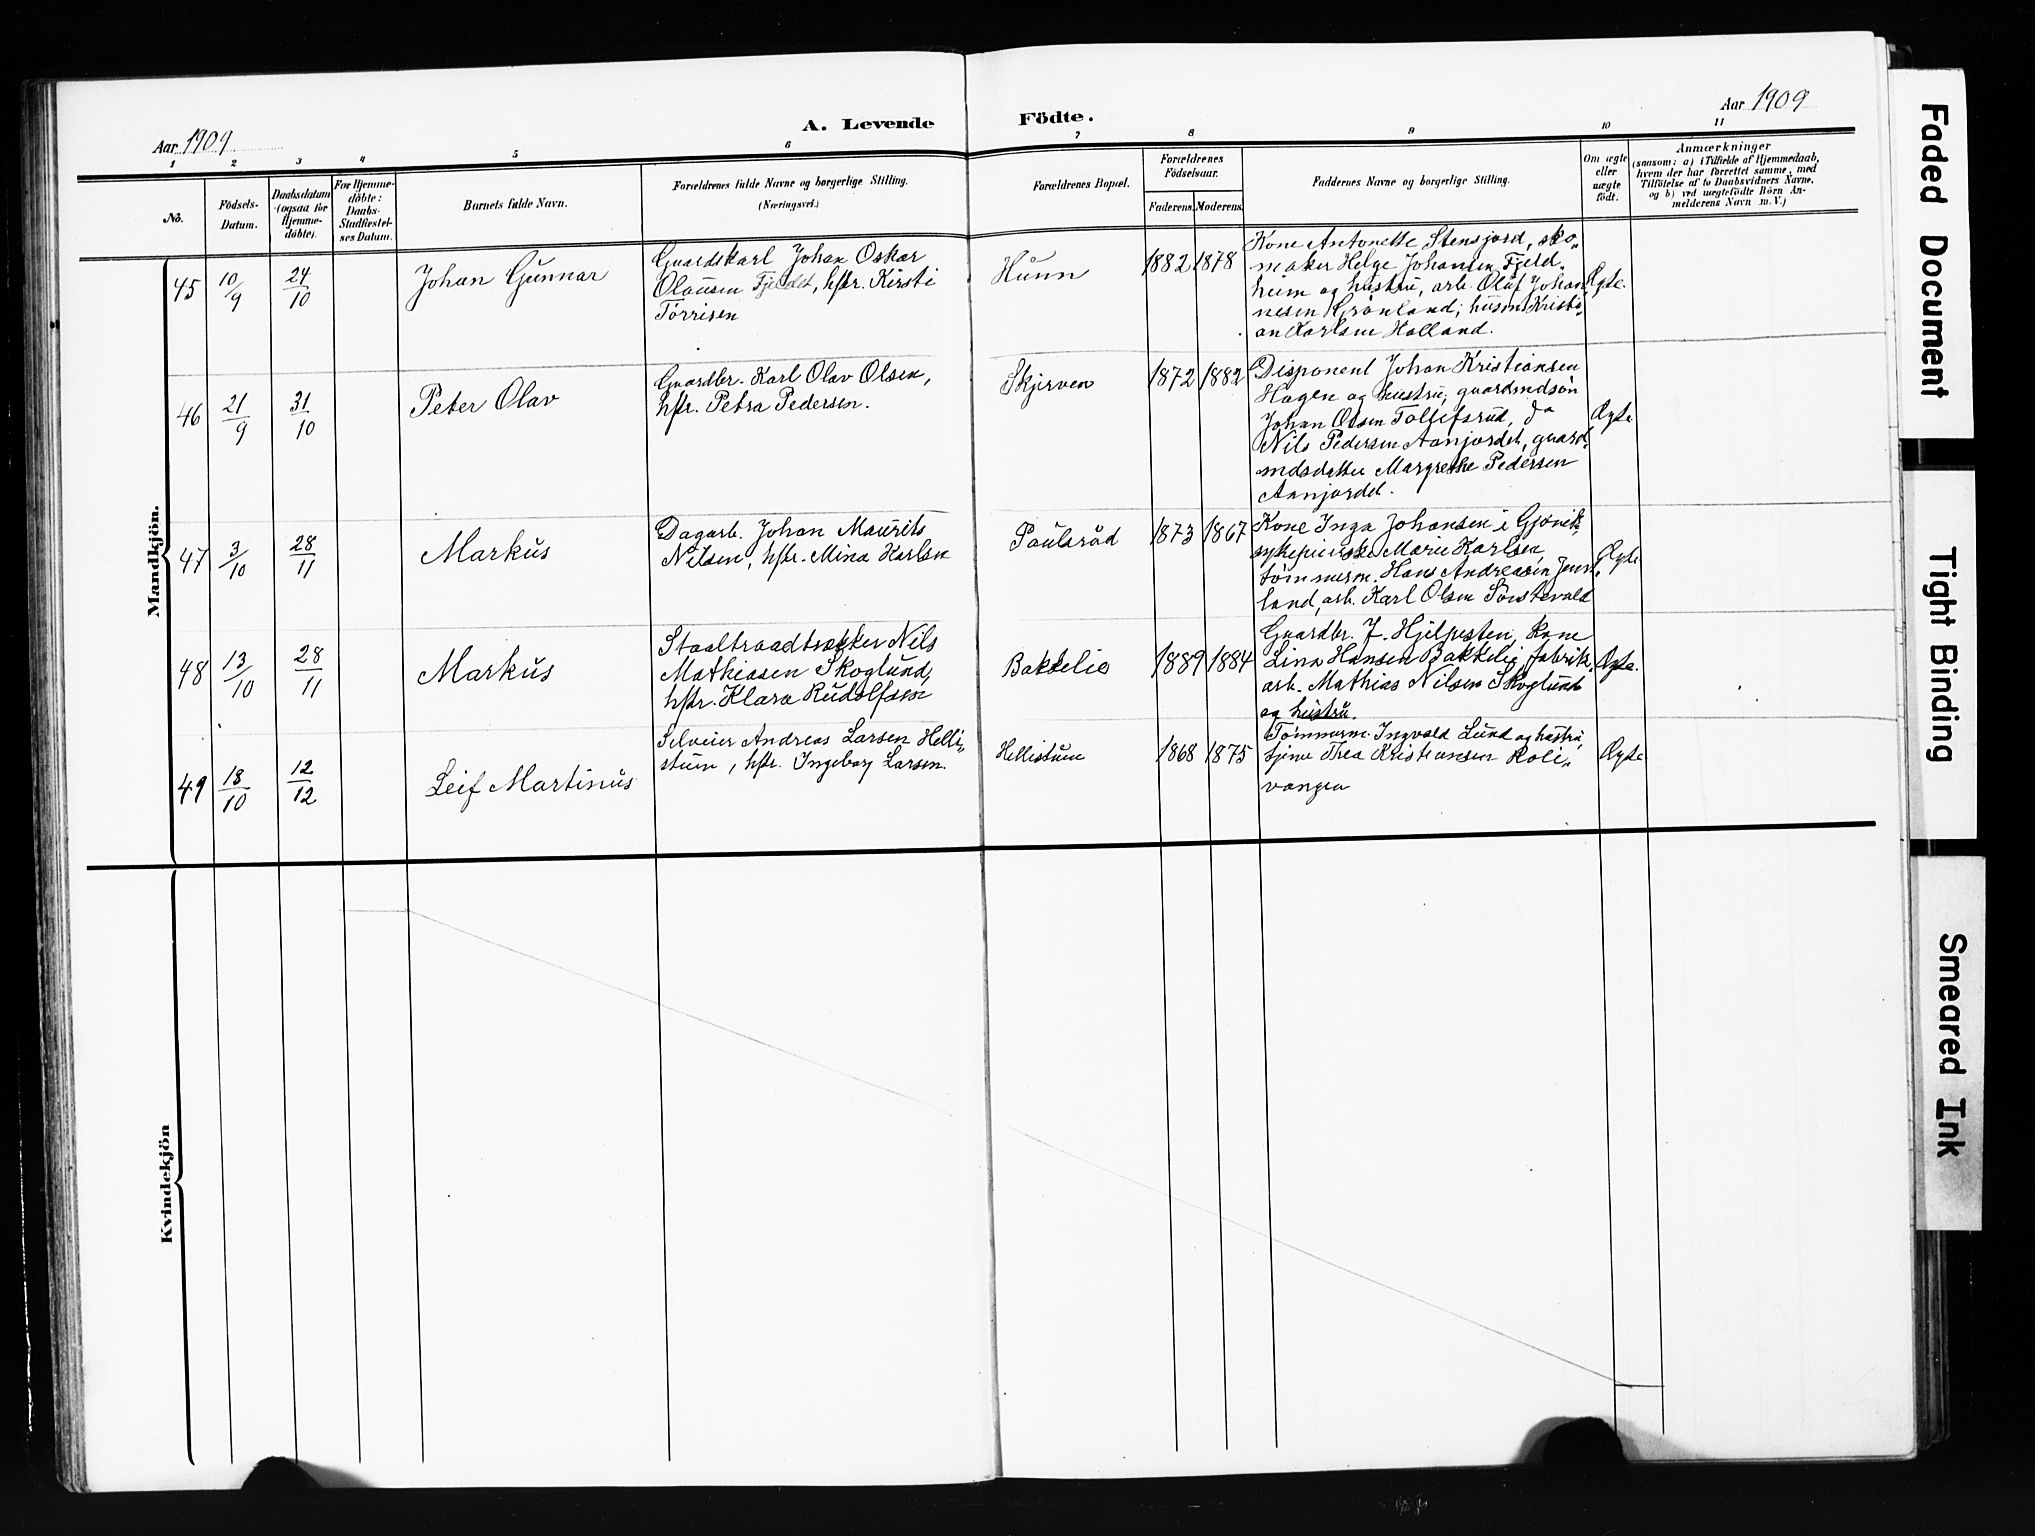 Aar 1909
A. Levende Födte.
Aar 1909
1 2 3 4 5 6 7 8 9 10 11
No.
Födsels-
Datum.
Daabsdatum
(ogsaa for
Hjemme-
döbte).
For Hjemme-
döbte:
Daabs-
Stadfæstel-
ses Datum.
Barnets fulde Navn.
Forældrenes fulde Navne og borgerlige Stilling.
(Næringsvei.)
Forældrenes Bopæl.
Forældrenes
Födselsaar.
Faderens.
Moderens.
Faddernes Navne og borgerlige Stilling.
Om ægte
eller
uægte
født.
Anmærkninger
(saasom: a) i Tilfælde af Hjemmedaab,
hvem der har forrettet samme, med
Tilföielse af to Daabsvidners Navne,
og b) ved uægtefödte Börn An-
melderens Navn m. V.)
Mandkjön.
45
10/9
24/10
Johan Gunnar
Gaardskarl Johan Oskar
Olausen Fjeldet, hstr. Kirsti
Torrisen
Hunn
1882
1878
Kone Antonette Stensjord, sko-
maker Helge Johansen Fjeld-
heim og hustru, arb. Oluf Johan-
nesen Grønland, husm. Kristi-
an Karlsen Halland.
Ægte.
46
21/9
31/10
Peter Olav
Gaardbr. Karl Olav Olsen,
hstr. Petra Pedersen.
Skjerven
1872
1882
Disponent Johan Kristiansen
Hagen og hustru, gaardmdsøn
Johan Olsen Tollefsrud, do
Nils Pedersen Aanjordet, gaard-
mdsdatter Margrethe Pedersen
Aanjordet.
Ægte
47
3/10
28/11
Markus
Dagarb. Johan Maurits
Nilsen, hstr. Mina Karlsen
Paulsrud
1873
1867
Kone Inga Johansen i Gjøvik,
sykepleierske Marie Karlsen,
tømmerm. Hans Andreasen
land, arb. Karl Olsen
Ægte.
48
13/10
28/11
Markus
Staaltraadtrækker Nils
Mathiasen Skoglund,
hstr. Klara Rudolfsen
Bakkelie
1889
1884
Gaardbr. J. Hjelpesten, kone
Lina Hansen Bakkelie, fabrik-
arb. Mathias Nilsen Skoglund
og hustru.
Ægte.
49
18/10
12/12
Leif Martinus
Selveier Andreas Larsen Helli-
stuen, hstr. Ingeborg Larsen.
Hellistuen
1868
1875
Tømmerm. Ingvald Lund og hustru,
tjene Thea Kristiansen Roli-
vangen
Ægte
Kvindekjön
Faded Document
Tight Binding
Smeared Ink